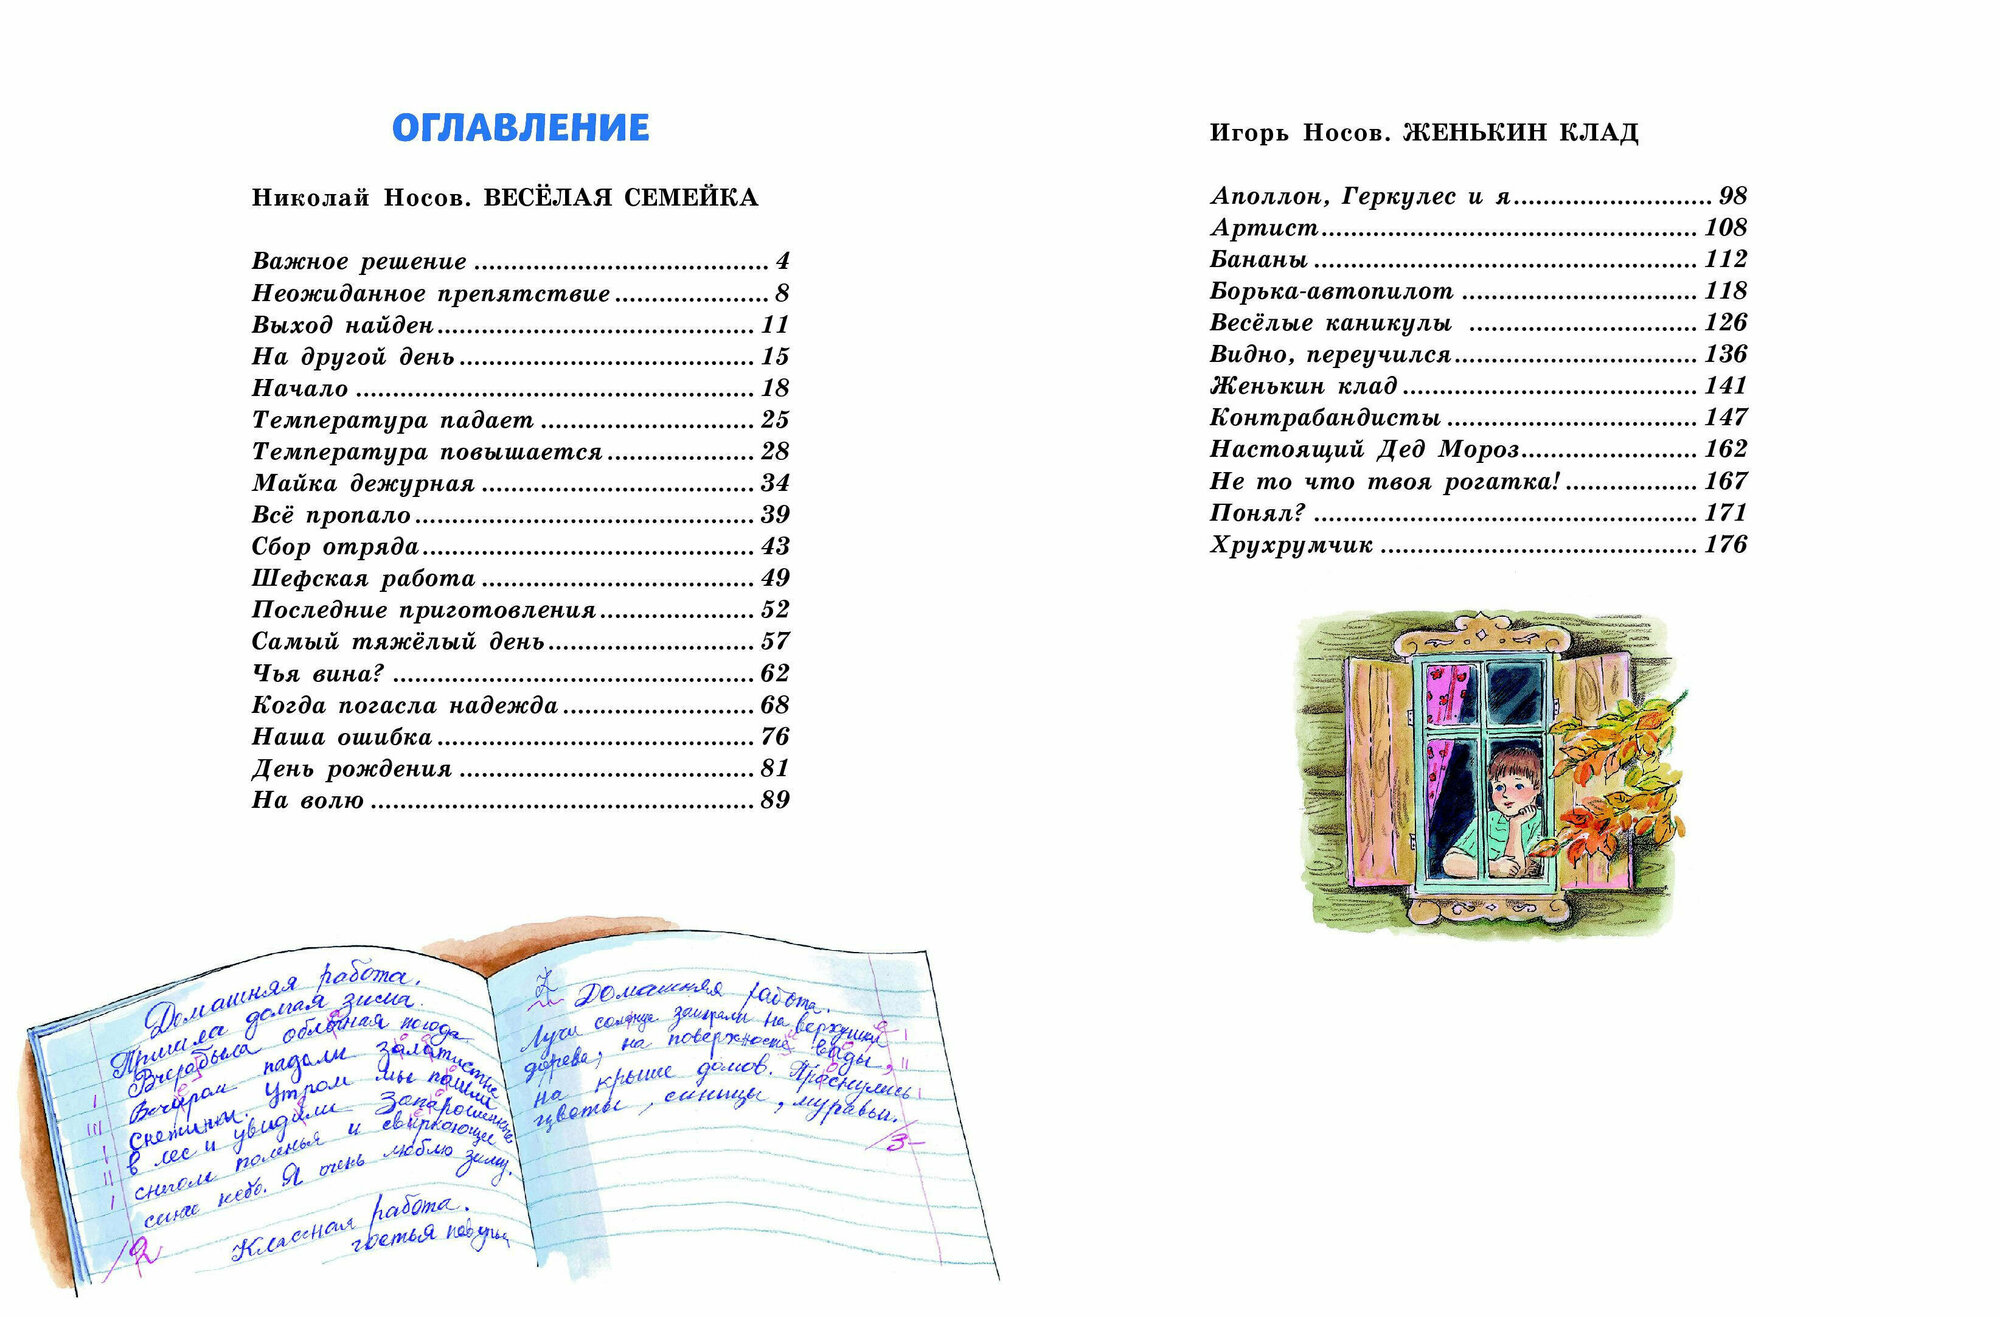 ОГЛАВЛЕНИЕ
Николай Носов. ВЕСЁЛАЯ СЕМЕЙКА
Важное решение ........ 4
Неожиданное препятствие ........ 8
Выход найден ........ 11
На другой день ........ 15
Начало ........ 18
Температура падает ........ 25
Температура повышается ........ 28
Майка дежурная ........ 34
Всё пропало ........ 39
Сбор отряда ........ 43
Шефская работа ........ 49
Последние приготовления ........ 52
Самый тяжёлый день ........ 57
Чья вина? ........ 62
Когда погасла надежда ........ 68
Наша ошибка ........ 76
День рождения ........ 81
На волю ........ 89
Домашняя работа.
Пришла долгая зима.
Вчера была облачная погода
Вечером падали
снежинки. Утром мы пошли
в лес и увидели
снегом поленья и
синее небо. Я очень люблю зиму.
2
Классная работа.
Домашняя работа.
Лучи солнца заиграли на верхушки
дерева, на поверхности вады,
на крыше домов. Праснулись
цветы, синицы, муравьи.
3-
Игорь Носов. ЖЕНЬКИН КЛАД
Аполлон, Геркулес и я ........ 98
Артист ........ 108
Бананы ........ 112
Борька-автопилот ........ 118
Весёлые каникулы ........ 126
Видно, переучился ........ 136
Женькин клад ........ 141
Контрабандисты ........ 147
Настоящий Дед Мороз ........ 162
Не то что твоя рогатка! ........ 167
Понял? ........ 171
Хрухрумчик ........ 176